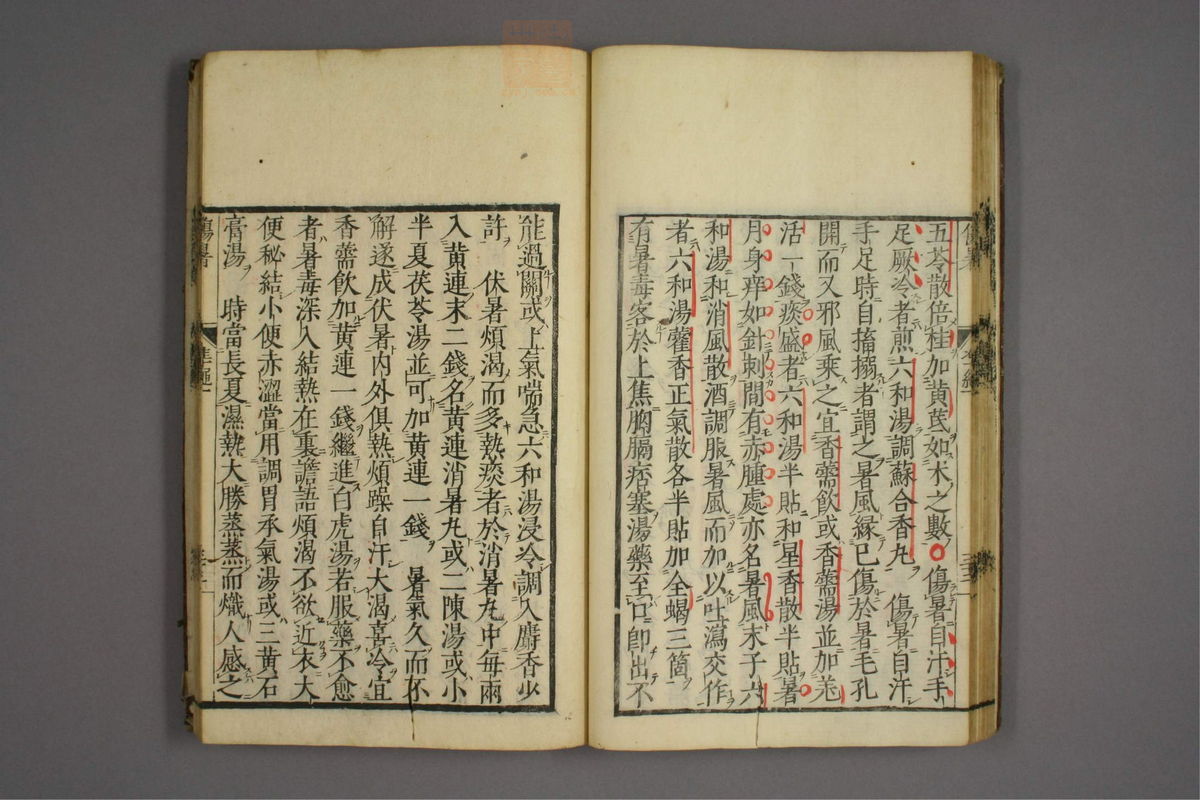 五苓散倍桂加黄芪如朮之數 傷暑自汗手
足厥冷者煎六和湯調蘇合香丸 傷暑自汗
手足時自搐搦者謂之暑風縁已傷於暑毛孔
開而又邪風乘之宜香薷飲或香薷湯並加羌
活一錢痰盛者六和湯半貼和星香散半貼暑
月身痒如針刺間有赤腫處亦名暑風末子六
和湯和消風散酒調服暑風而加以吐瀉交作
者六和湯藿香正氣散各半貼加全蝎三箇
有暑毒客於上焦胸膈痞塞湯藥至口卽出不
能過關或上氣喘急六和湯浸冷調入麝香少
許 伏暑煩渴而多熱痰者於消暑丸中毎兩
入黄連末二錢名黄連消暑丸或二陳湯或小
半夏茯苓湯並可加黄連一錢 暑氣久而不
解遂成伏暑内外俱熱煩躁自汗大渴喜冷宜
香薷飲加黄連一錢繼進白虎湯若服藥不愈
者暑毒深入結熱在裏譫語煩渴不欲近衣大
便秘結小便赤澀當用調胃承氣湯或三黄石
膏湯 時當長夏濕熱大勝蒸蒸而熾人感之
傷暑